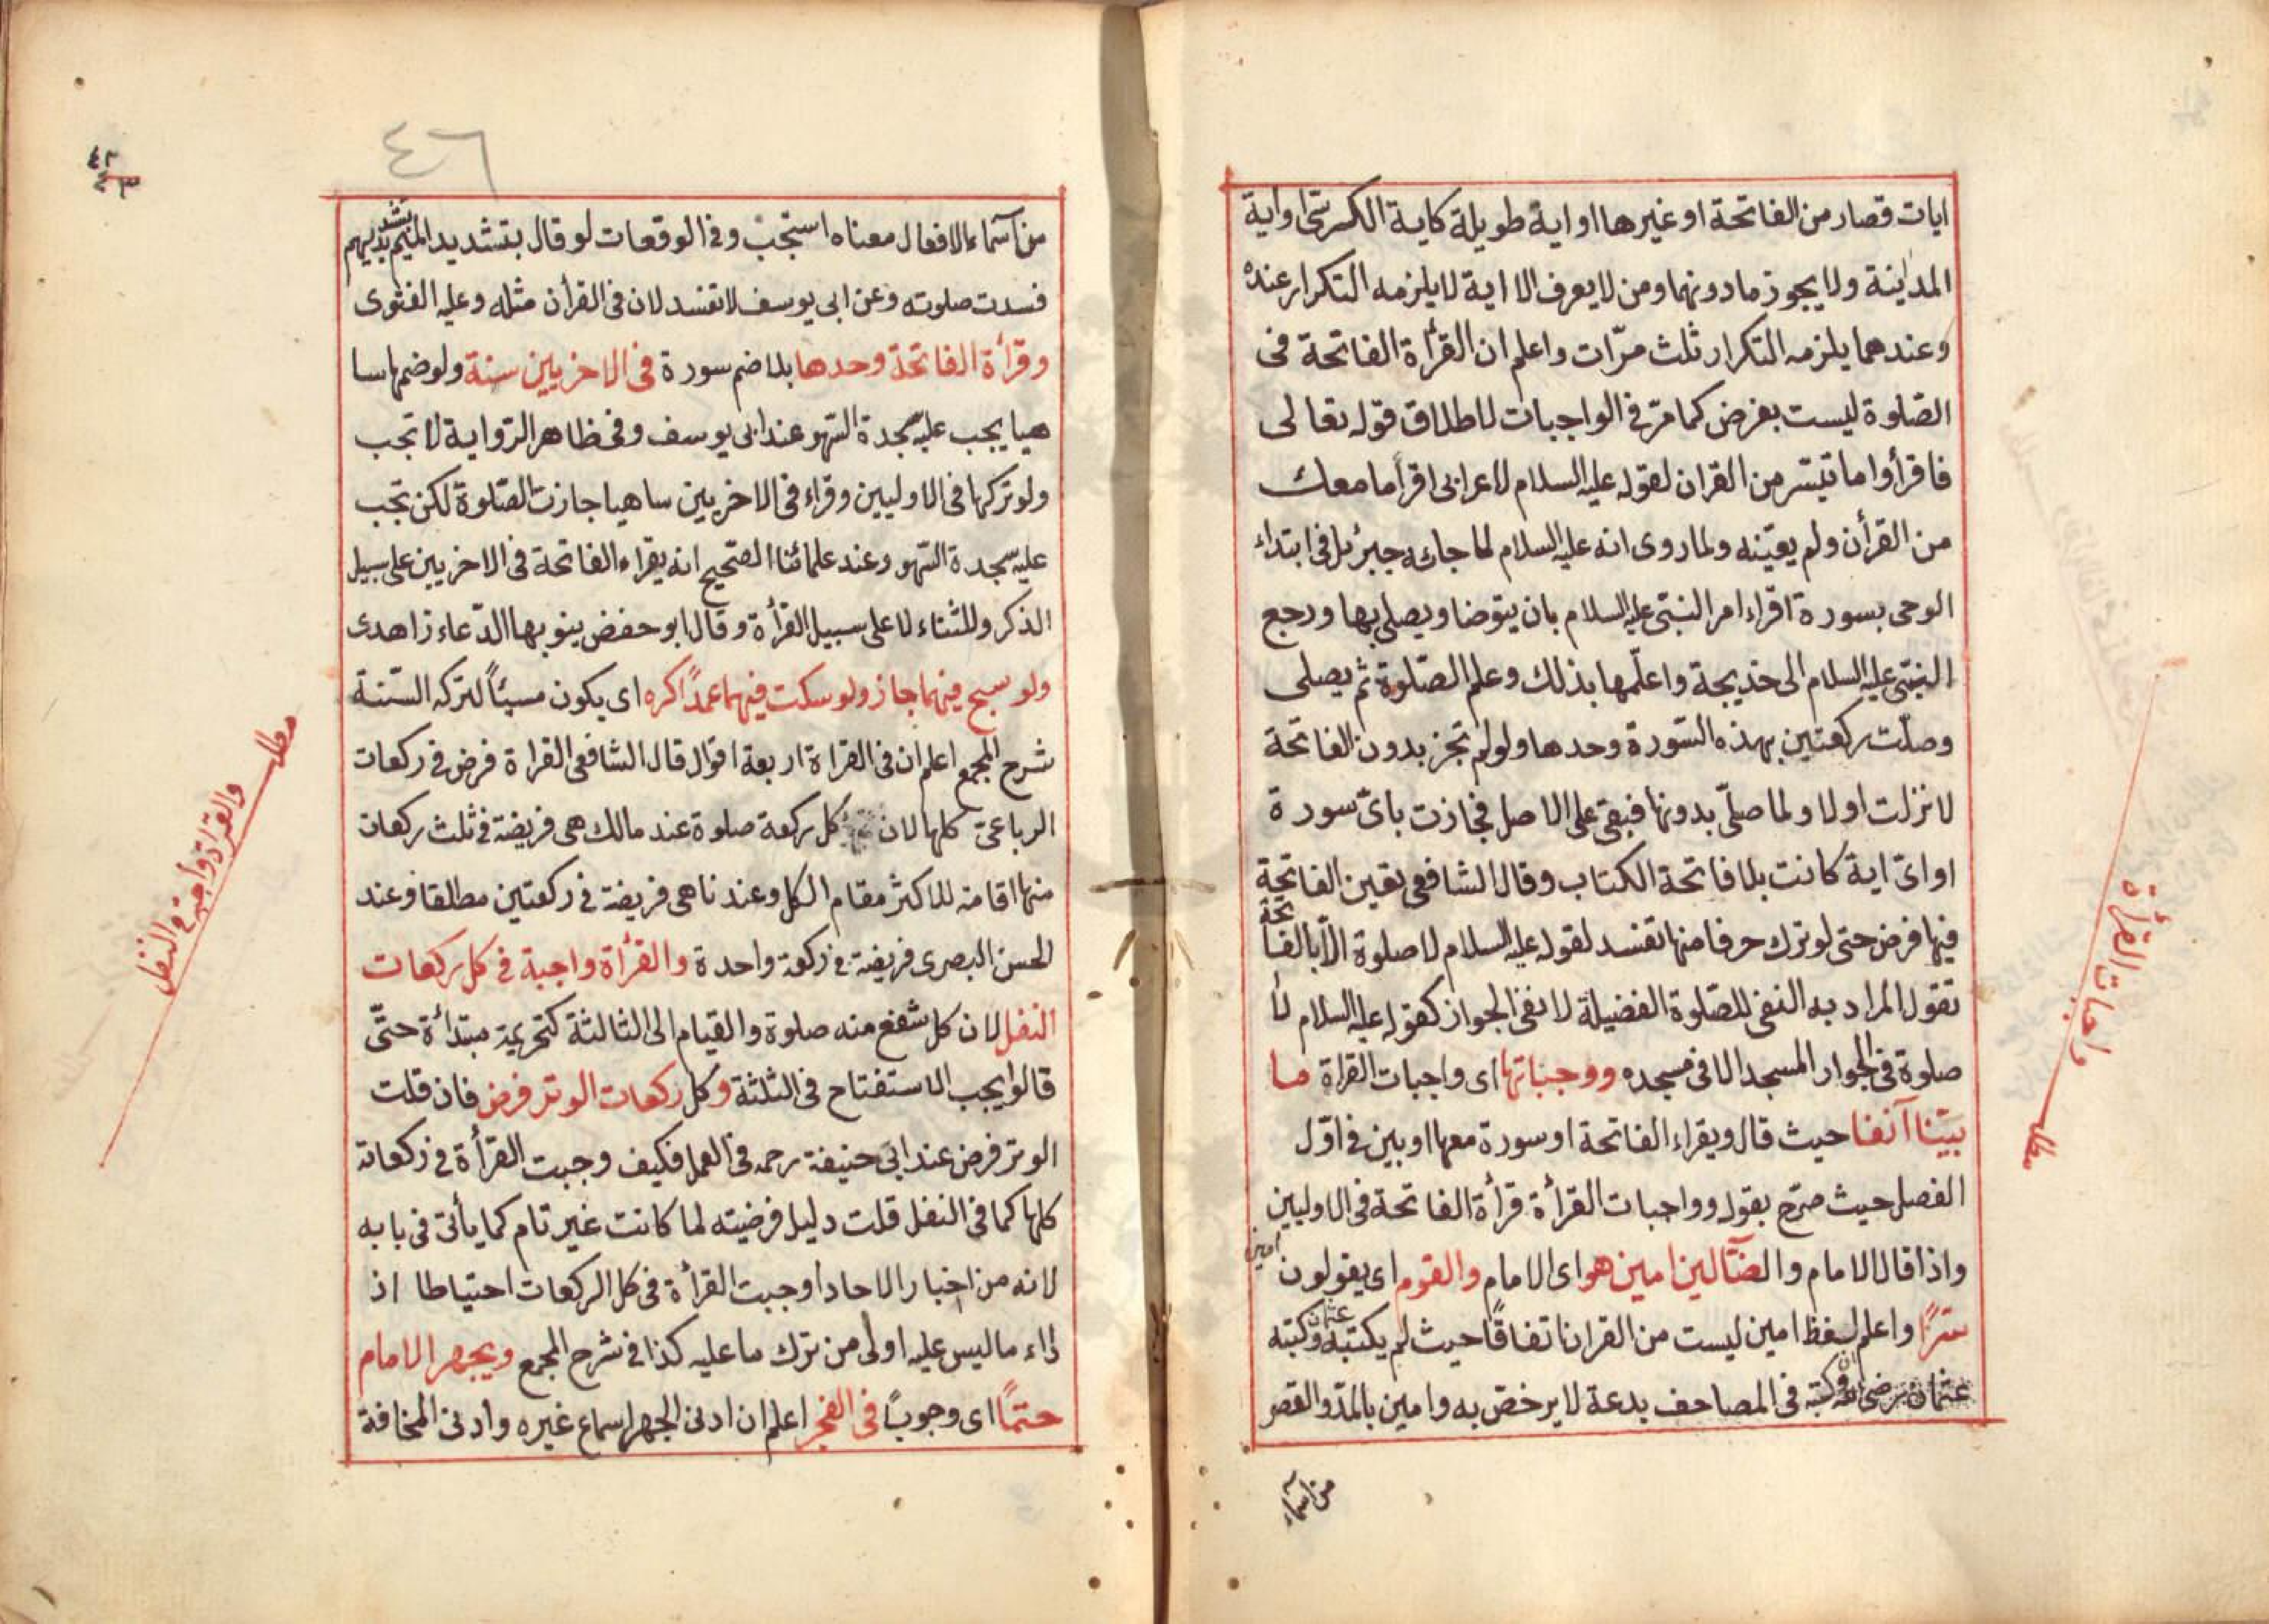 ايات قصار من الفاتحة او غيرها او اية طويلة كاية الكرسى او اية
المداينة ولا يجوز ما دونها ومن لا يعرف الا اية لا يلزمه التكرار عنده
وعندهما يلزمه التكرار ثلث مرّات واعلم ان القرأة الفاتحة فى
الصّلوة ليست بفرض كما مرّ فى الواجبات لاطلاق قوله تعالى
فاقرأوا ما تيسّر من القران لقوله عليه السلام لاعرابى اقرأ ما معك
من القرأن ولم يعيّنه ولما روى انه عليه السلام لما جاءه جبرئل فى ابتداء
الوحى بسورة اقراء امر النبىّ عليه السلام بان يتوضا ويصلى بها ورجع
النبىّ عليه السلام الى خديجة واعلّمها بذلك وعلم الصّلوة ثم يصلى
وصلّت ركعتين بهذه السّورة وحدها ولو لم تجز بدون الفاتحة
لانزلت اولا ولما صلّى بدونها فبقى على الاصل فجازت باىّ سورة
او اىّ اية كانت بلا فاتحة الكتاب وقال الشافعى تعين الفاتحة
فيها فرض حتى لو ترك حرفا منها تفسد لقوله عليه السلام لا صلوة الّا بالفاتحة
نقول المراد به النفى للصّلوة الفضيلة لا نفى الجواز كقوله عليه السلام لا
صلوة فى الجوار المسجد الا فى مسجده ووجباتها اى واجبات القراة ما
بيّنا آنفا حيث قال ويقراء الفاتحة او سورة معها او بين فى اوّل
الفصل حيث صرّح بقوله وواجبات القرأة قرأة الفاتحة فى الاوليين
واذا قال الامام والضآلين امين هو اى الامام والقوم اى يقولون امين
سرًّا واعلم لفظ امين ليست من القران اتفاقًا حيث لم يكتبه عثمان وكتبه
عثمان رضى الله وكتبه فى المصاحف بدعة لا يرخصّ به وامين بالمدّ والقصر
من اسماء
واجبات القرأة
مطلب
٤٦
من آسماء الافعال معناه استجب وفى الوقعات لو قال بتشديد الميم
فسدت صلوته وعن ابى يوسف لا تفسد لان فى القرأن مثله وعليه الفتوى
وقرأة الفاتحة وحدها بلا ضم سورة فى الاخريين سنة ولو ضمها سا
هيا يجب عليه سجدة السّهو عند ابى يوسف وفى ظاهر الرّواية لا تجب
ولو تركها فى الاوليين وقراء فى الاخريين ساهيا جازت الصّلوة لكن تجب
عليه سجدة السّهو وعند علمائنا الصّحيح انه يقراء الفاتحة فى الاخريين على سبيل
الذكر وللثناء لا على سبيل القرأة وقال ابو حفض ينو بها الدّعاء زاهدى
ولو سبح فيهما جاز ولو سكت فيهما عمدًا كره اى يكون مسيئًا لتركه السّنة
شرح المجمع اعلم ان فى القراة اربعة اقوال قال الشافعى القراة فرض فى ركعات
الرباعىّ كلها لان كل ركعة صلوة عند مالك هى فريضة فى ثلث ركعات
منها اقامة للاكثر مقام الكل وعندنا هى فريضة فى ركعتين مطلقا وعند
الحسن البصرى فريضة فى ركعة واحدة والقرأة واجبة فى كل ركعات
النفل لان كل شفع منه صلوة والقيام الى الثالثة كتحريمة مبتدأة حتّى
قالوا يجب الاستفتاح فى الثلثة وكل ركعات الوتر فرض فان قلت
الوتر فرض عند ابى حنيفة رحمه فى العمل فكيف وجبت القرأة فى ركعاته
كلها كما فى النفل قلت دليل فرضيته لما كانت غير تام كما يأتى فى بابه
لانه من اخبار الاحاد اوجبت القرأة فى كل الركعات احتياطا اذ
اداء ما ليس عليه اولى من ترك ما عليه كذا فى شرح المجمع ويجهر الامام
حتمًا اى وجوبًا فى الفجر اعلم ان ادنى الجهر اسماع غيره وادنى المخافة
مطلب
والقرأة واجبة فى النفل